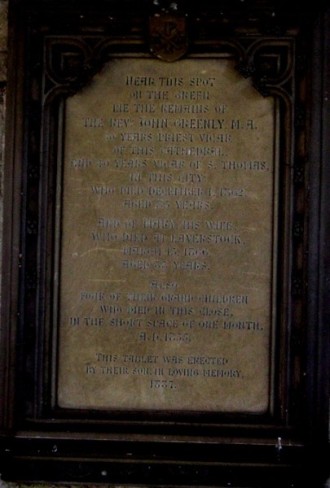 NEAR THIS SPOT
IN THE GREEN
LIE THE REMAINS OF
THE REV. JOHN GREENLY, M.A.
YEARS PRIEST VICAR
OF THIS CATHEDRAL
AND YEARS VICAR OF S. THOMAS,
IN THIS CITY
WHO DIED DECEMBER
AGED YEARS.
ALSO OF HIS WIFE,
WHO DIED AT LAVERSTOCK
AGED YEARS.
ALSO
FOUR OF THEIR GRANDCHILDREN
WHO DIED IN THIS CLOSE,
IN THE SHORT SPACE OF ONE MONTH,
A.D.
THIS TABLET WAS ERECTED
BY THEIR SON IN LOVING MEMORY,